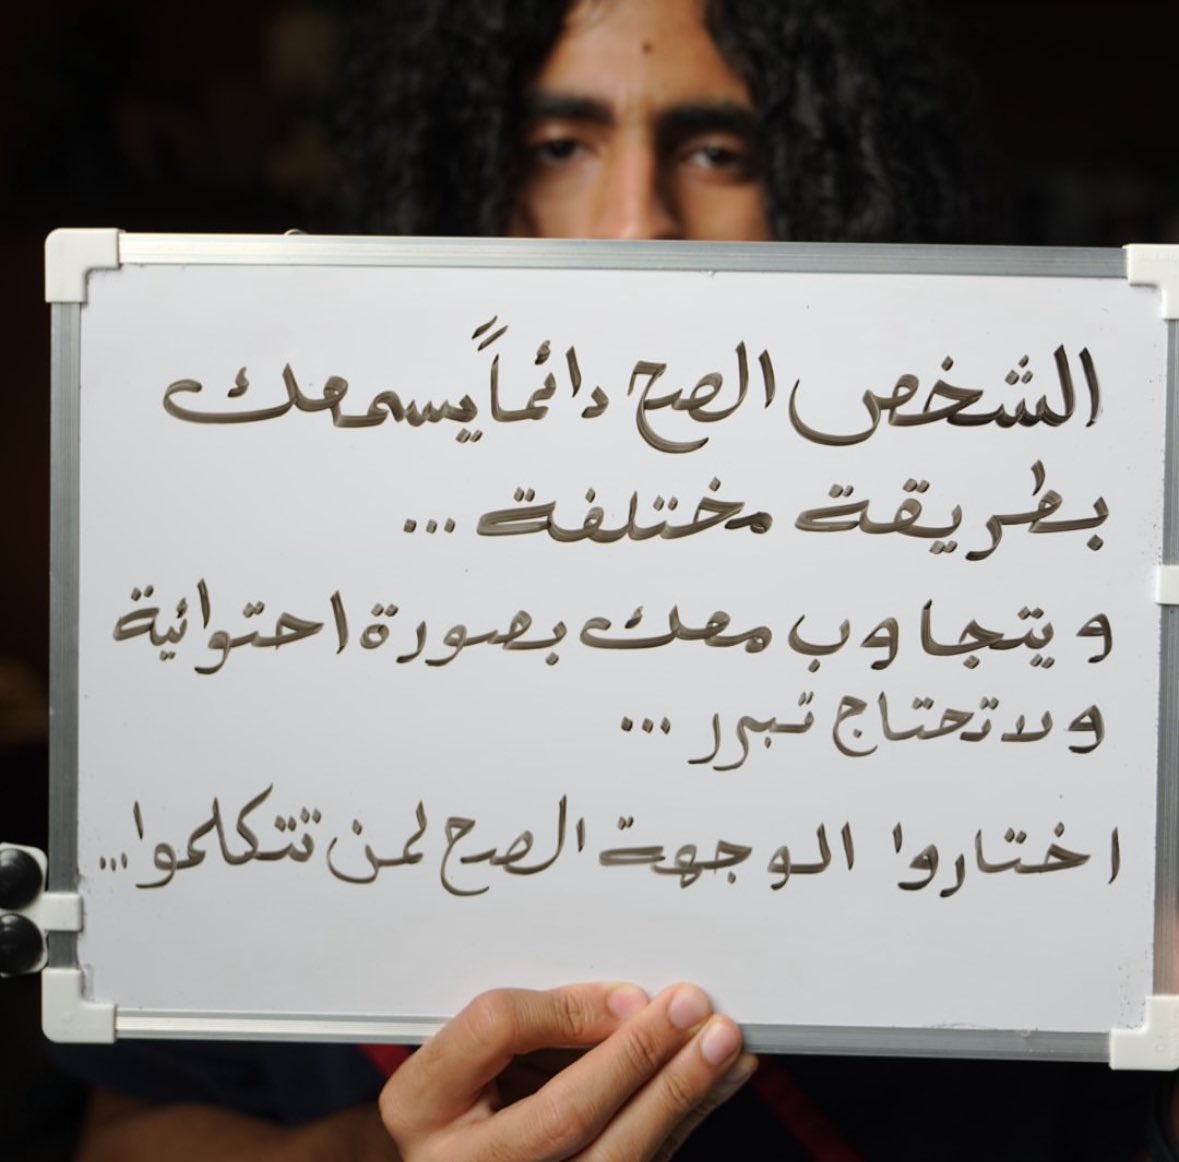 الشخص الصح دائماً يسمعك
بطريقة مختلفة ...
و يتجاوب معك بصورة احتوائية
ولا تحتاج تبرر ...
اختاروا الوجهة الصح لمن تتكلموا ...